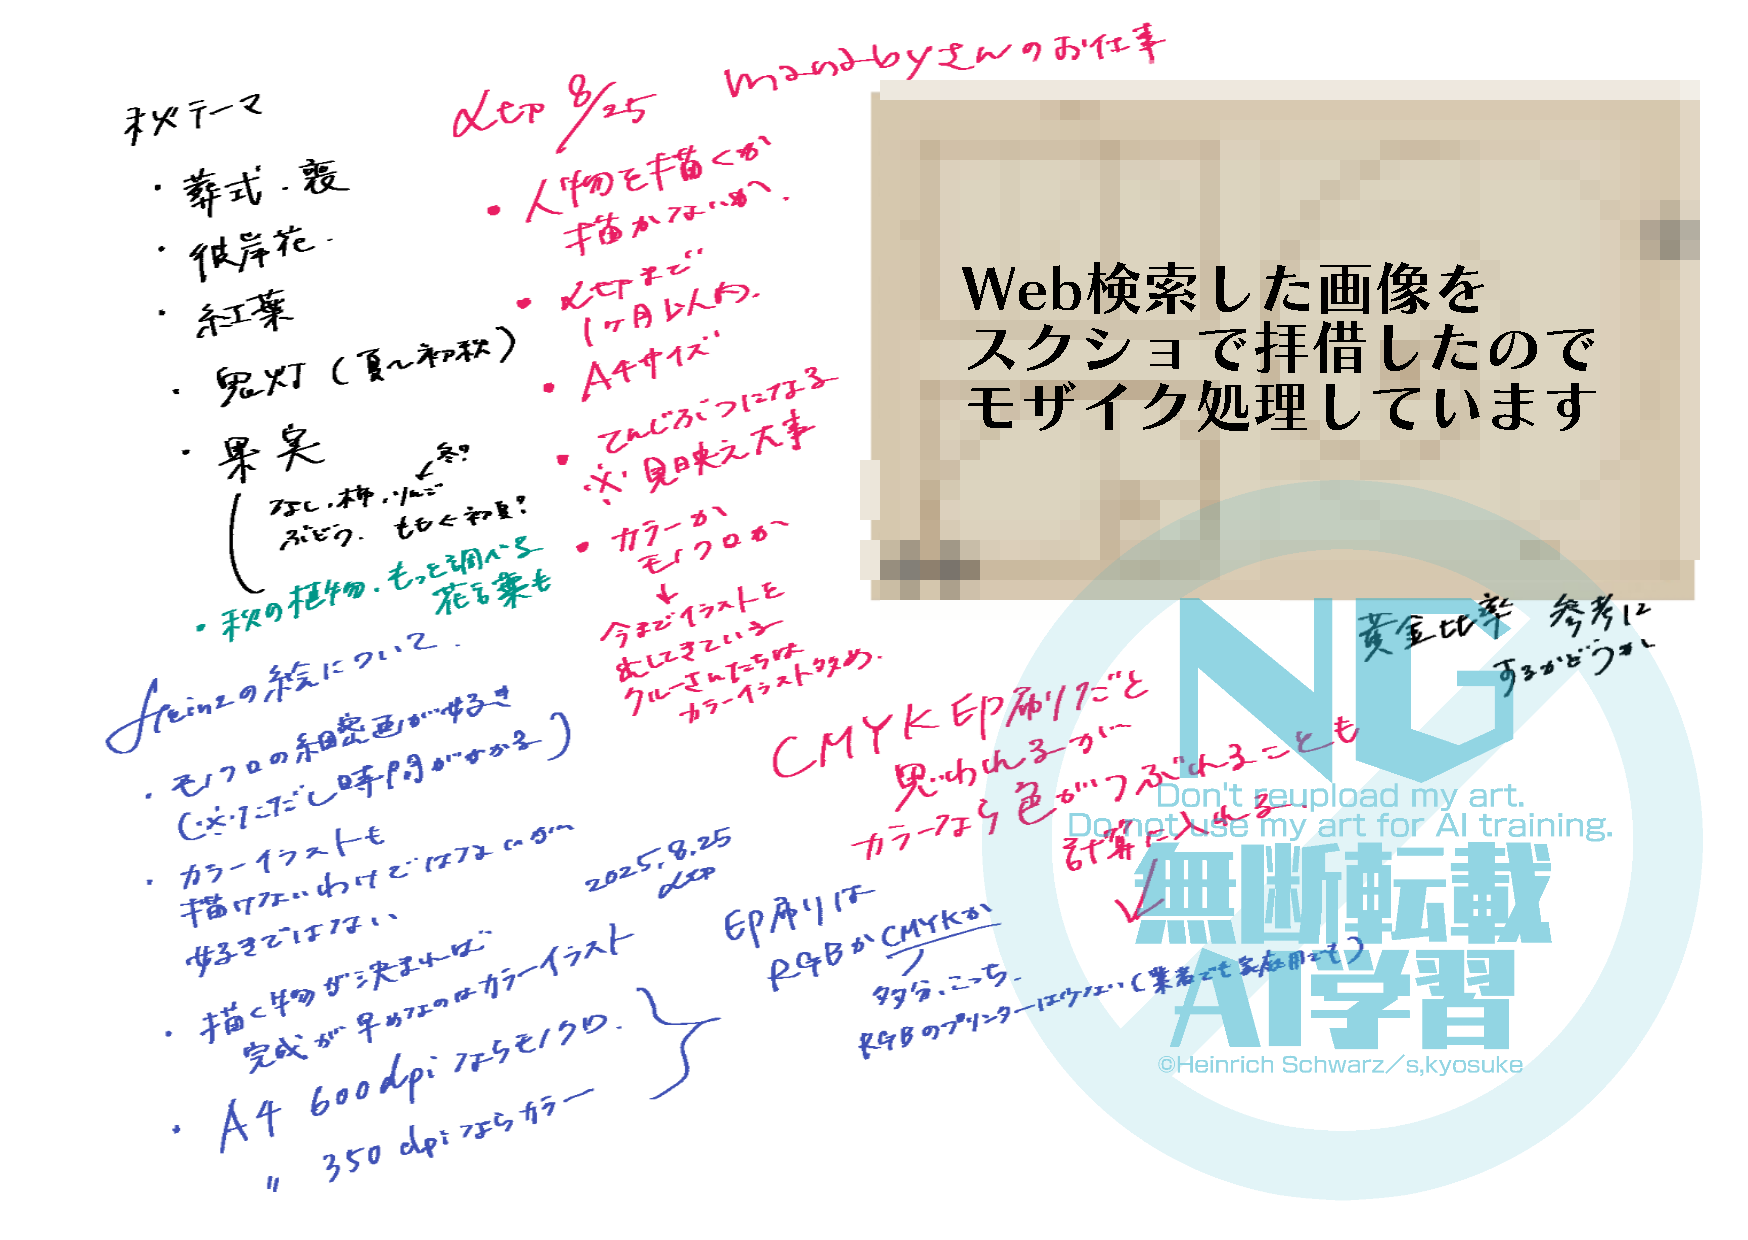 秋テーマ
・葬式・喪
・彼岸花.
・紅葉
・鬼灯(夏〜初秋)
・果実
←冬?
なし、柿、りんご
ぶどう、ももく初夏?
・秋の植物、もっと調べる
花言葉も
〆切 8/25 manabyさんのお仕事
・人物を描くか
描かないか.
・〆切まで
1ヶ月以内.
・A4サイズ
・てんじぶつになる
※見映え大事
・カラーか
モノクロか
↓
今までイラストを
出してきている
クルーさんたちは
カラーイラスト多め.
Web検索した画像を
スクショで拝借したので
モザイク処理しています
黄金比率 参考に
するかどうか
Heinzの絵について.
・モノクロの細密画が好き
(※ただし時間がかかる)
・カラーイラストも
描けないわけではないが
好きではない
2025.8.25
〆切
・描く物が決まれば
完成が早めなのはカラーイラスト
・A4 600dpiならモノクロ.
〃 350dpiならカラー
CMYK印刷だと
思われるが
カラーなら色がつぶれることも
計算に入れる.
印刷は
RGBかCMYKか
多分、こっち.
RGBのプリンターはない(業者でも家庭用でも)
NG
Don't reupload my art.
Do not use my art for AI training.
無断転載
AI学習
©Heinrich Schwarz/s,kyosuke